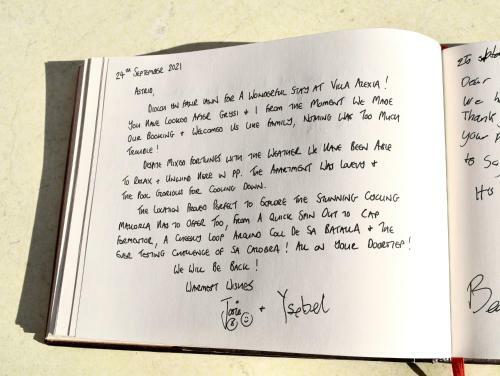 24TH SEPTEMBER 2021
ASTRID,
DIOLCH UN FAWR IAWN FOR A WONDERFUL STAY AT VILLA ALEXIA!
YOU HAVE LOOKED AFTER & I FROM THE MOMENT WE MADE
OUR BOOKING & WELCOMED US LIKE FAMILY, NOTHING WAS TOO MUCH
TROUBLE!
DESPITE MIXED FORTUNES WITH THE WEATHER WE HAVE BEEN ABLE
TO RELAX & UNWIND HERE IN PP. THE APARTMENT WAS LOVELY &
THE POOL GLORIOUS FOR COOLING DOWN.
THE LOCATION PROVED PERFECT TO EXPLORE THE STUNNING CYCLING
MALLORCA HAS TO OFFER TOO, FROM A QUICK SPIN OUT TO CAP
FORMENTOR, A CHEEKY LOOP AROUND COLL DE SA BATALLA & THE
EVER TESTING CHALLENGE OF SA CALOBRA! ALL ON YOUR DOORSTEP!
WE WILL BE BACK!
WARMEST WISHES
+ Ysebel
Dear
we
Thank
your
to